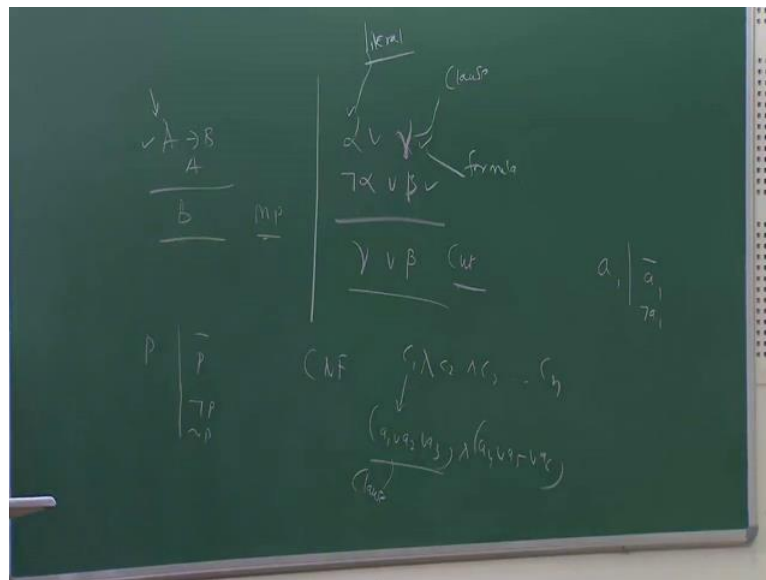 literal
Clause
A → B
A
B MP
α ∨ γ
formula
¬α ∨ β
γ ∨ β Cut
a₁ | ā₁
¬a₁
p | p̄
¬p
~p
CNF C₁ ∧ C₂ ∧ C₃ ... Cₙ
(a₁ ∨ a₂ ∨ a₃) ∧ (a₄ ∨ a₅ ∨ a₆)
Clause